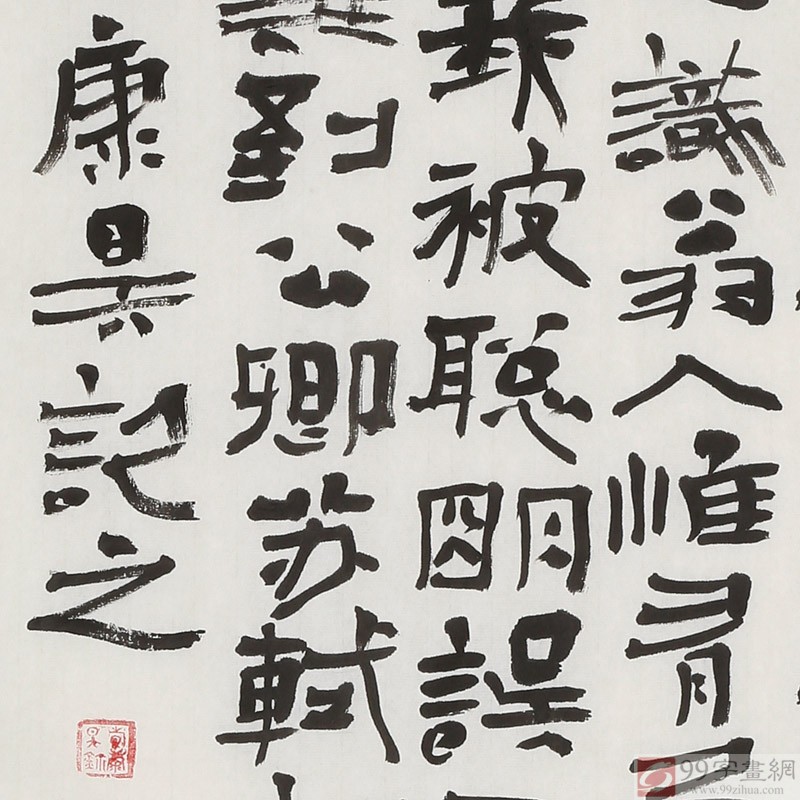 識翁人惟有
我被聪朙誤
到公卿苏軾
康昊記之
99字畫網
www.99zihua.com